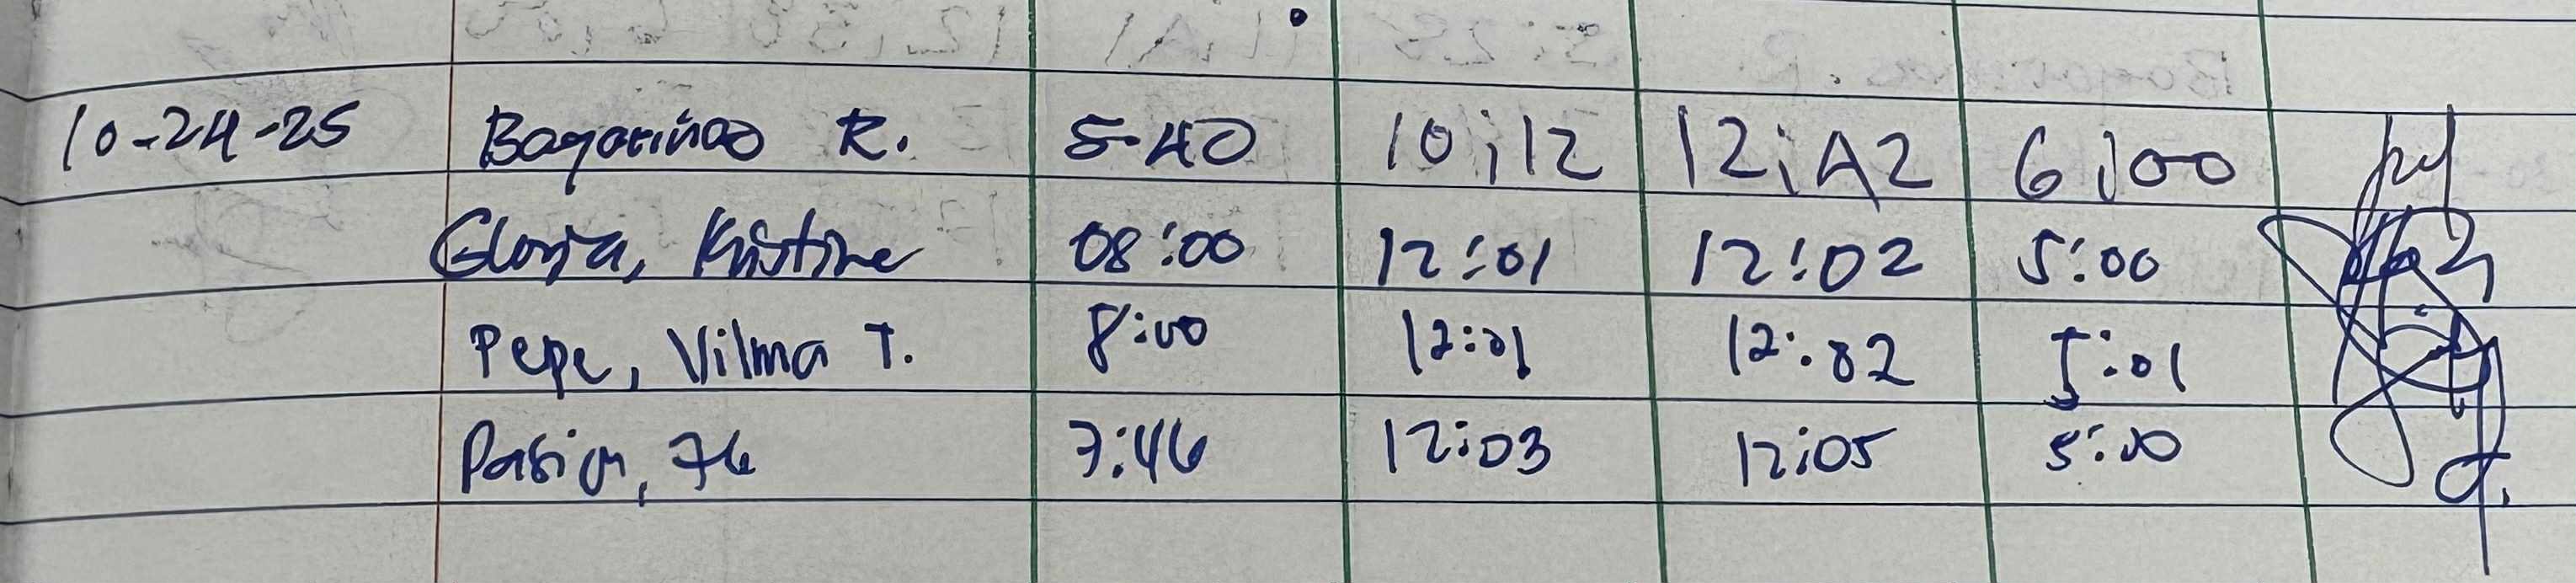 10-24-25 Bagarinao R. 5-40 10:12 12:42 6:00
Gloria, Kristine 08:00 12:01 12:02 5:00
Pepe, Vilma T. 8:00 12:01 12:02 5:01
Pasion, 7:46 12:03 12:05 5:00